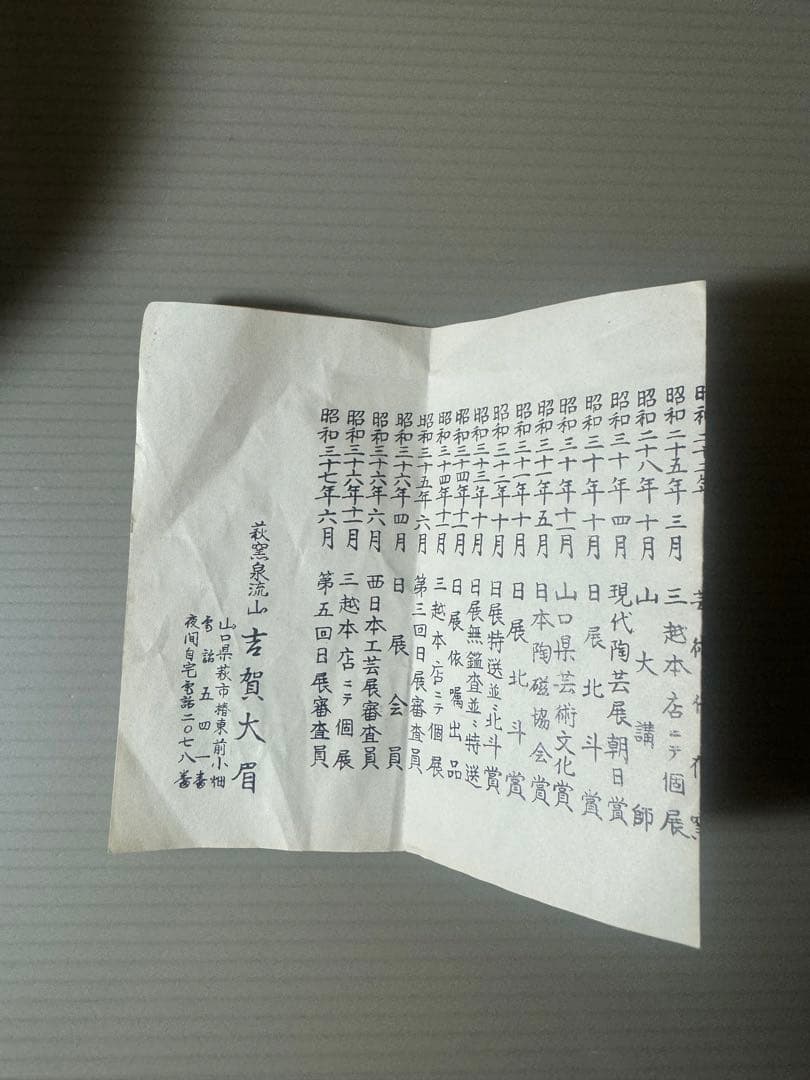 昭和二十二年 芸術
昭和二十五年 三月 三越本店ニテ個展
昭和二十八年 十月 山大講師
昭和三十年 四月 現代陶芸展朝日賞
昭和三十年十月 日展北斗賞
昭和三十年十一月 山口県芸術文化賞
昭和三十一年五月 日本陶磁協会賞
昭和三十一年十月 日展北斗賞
昭和三十二年十月 日展特送並ニ北斗賞
昭和三十三年十月 日展無鑑査並ニ特送
昭和三十四年十一月 日展依嘱出品
昭和三十四年十二月 三越本店ニテ個展
昭和三十五年六月 第三回日展審査員
昭和三十六年四月 日展会員
昭和三十六年六月 西日本工芸展審査員
昭和三十六年十一月 三越本店ニテ個展
昭和三十七年六月 第五回日展審査員
萩窯泉流山 吉賀大眉
山口県萩市椿東前小畑
電話五四一番
夜間自宅電話二〇七八番